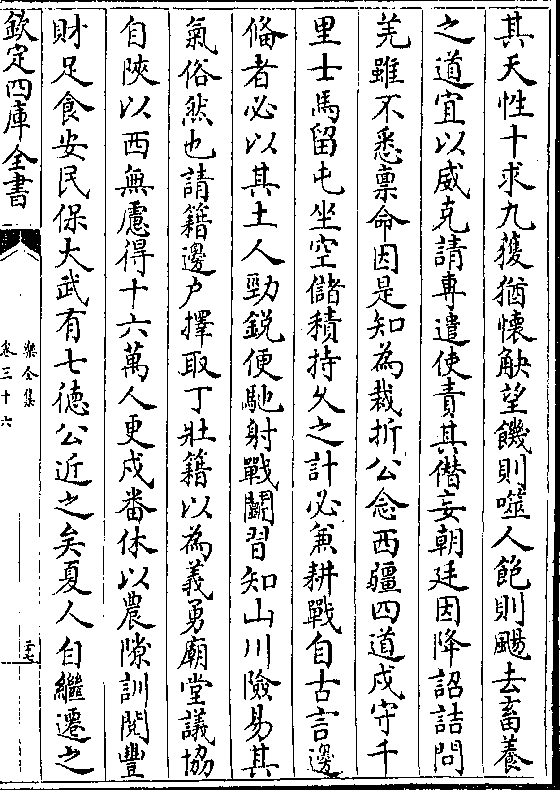 其天性十求九獲猶懷觖望饑則噬人飽則颺去畜養
之道宜以威克請專遣使責其僭妄朝廷因降詔詰問
羌雖不悉禀命因是知為裁折公念西疆四道戍守千
里士馬留屯坐空儲積持久之計必兼耕戰自古言邊
備者必以其土人勁銳便馳射戰鬭習知山川險易其
氣俗然也請籍邊户擇取丁壯籍以為義勇廟堂議協
自陜以西無慮得十六萬人更戍番休以農隙訓閱豐
財足食安民保大武有七德公近之矣夏人自繼遷之
欽定四庫全書
樂全集
卷三十六
三十七